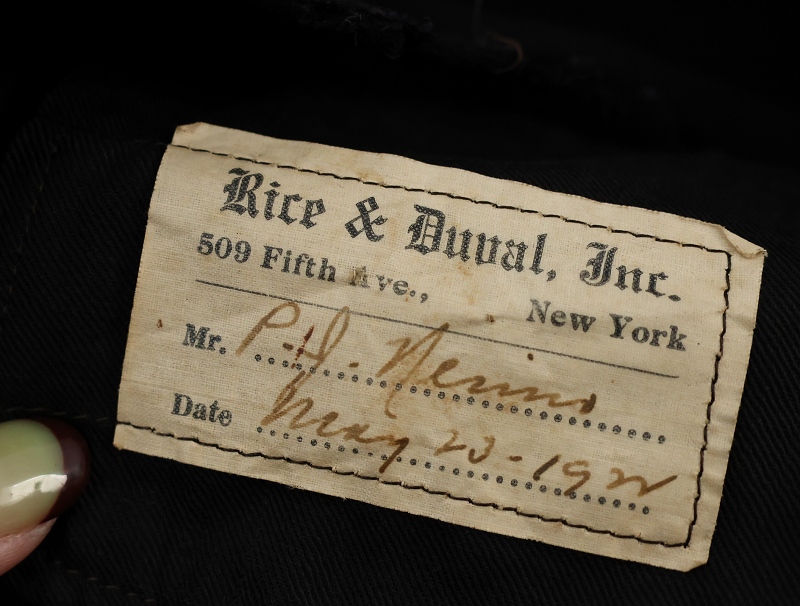 Rice & Duval, Inc.
509 Fifth Ave., New York
Mr. P.
Date May 23-1922